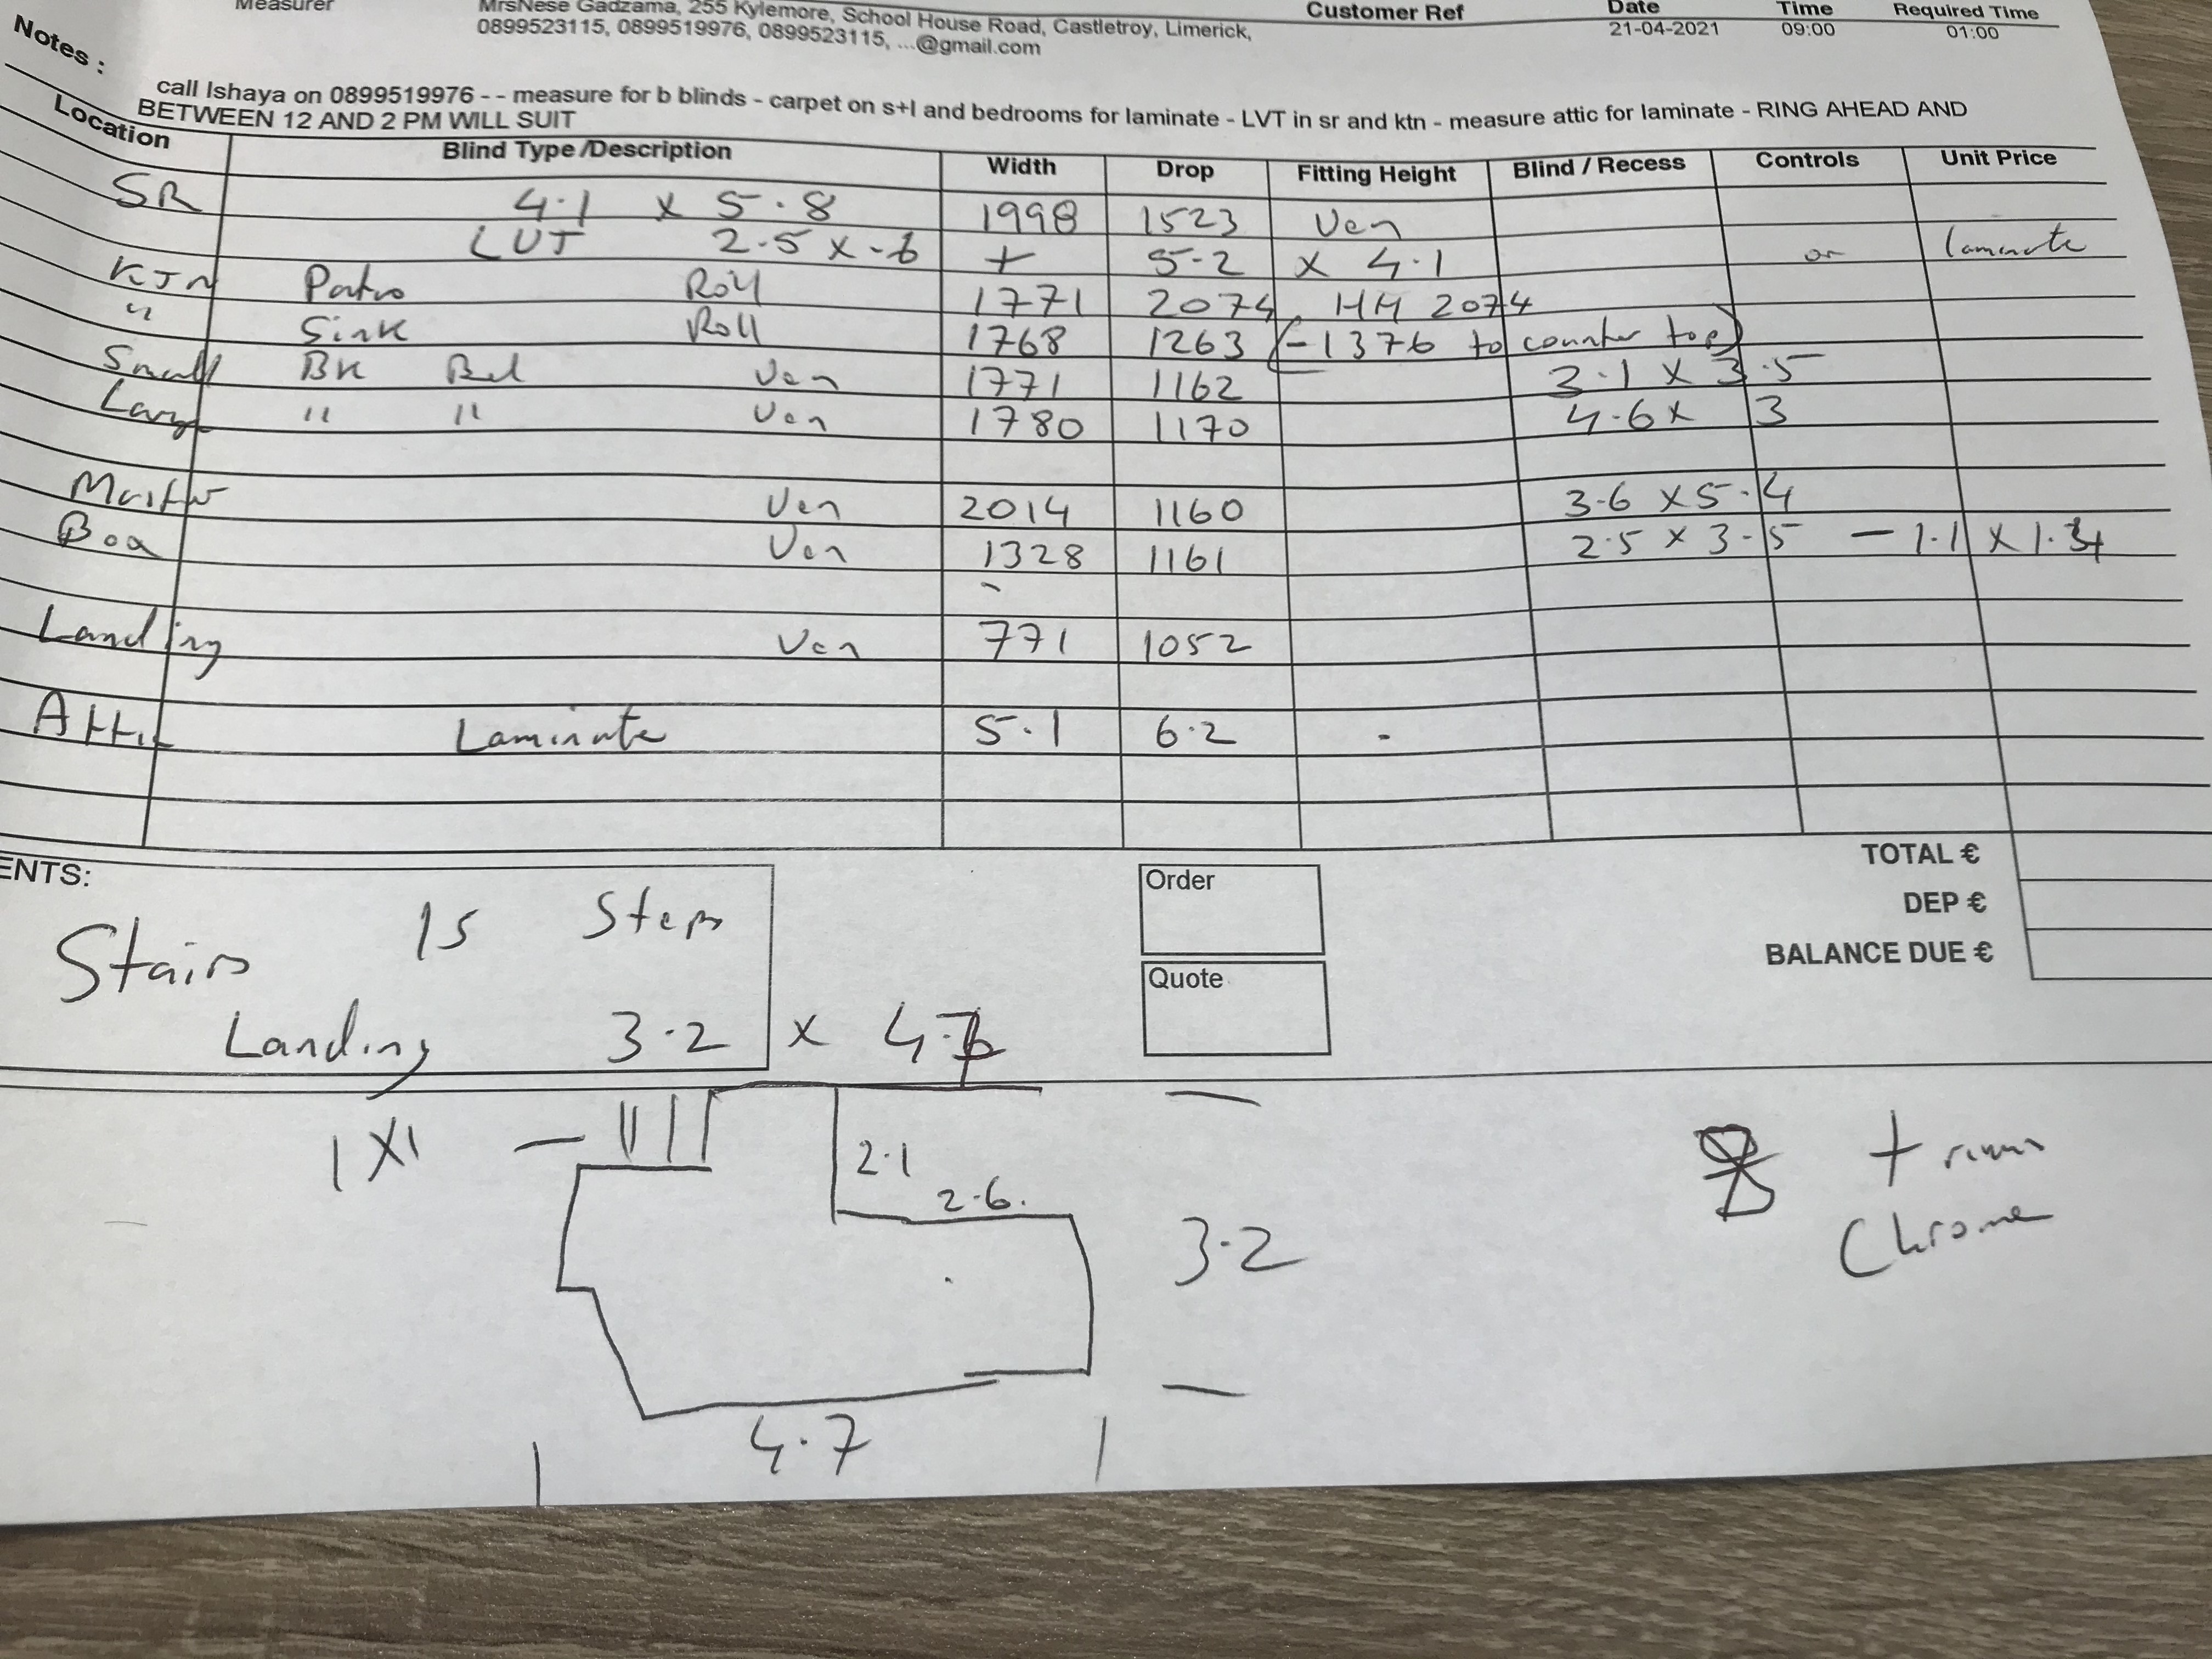 Measurer MrsNese Gadzama, 255 Kylemore, School House Road, Castletroy, Limerick, Customer Ref Date Time Required Time
0899523115, 0899519976, 0899523115, ...@gmail.com 21-04-2021 09:00 01:00
Notes :
call Ishaya on 0899519976 - - measure for b blinds - carpet on s+l and bedrooms for laminate - LVT in sr and ktn - measure attic for laminate - RING AHEAD AND
BETWEEN 12 AND 2 PM WILL SUIT
Location Blind Type /Description Width Drop Fitting Height Blind / Recess Controls Unit Price
SR 4.1 x 5.8 1998 1523 Ven
LVT 2.5 x .6 + 5.2 x 4.1 or laminate
KTN Patio Roll 1771 2074 HH 2074
" Sink Roll 1768 1263 (-1376 to counter top)
Small Bk Bed Ven 1771 1162 3.1 x 3.5
Large " " Ven 1780 1170 4.6 x 3
Master Ven 2014 1160 3.6 x 5.4
Box Ven 1328 1161 2.5 x 3.5 - 1.1 x
Landing Ven 771 1052
Attic Laminate 5.1 6.2
ENTS:
Stairs 15 Steps
Landing 3.2 x
Order
Quote
TOTAL €
DEP €
BALANCE DUE €
1 x 1
2.1
2.6
3.2
4.7
trims
Chrome